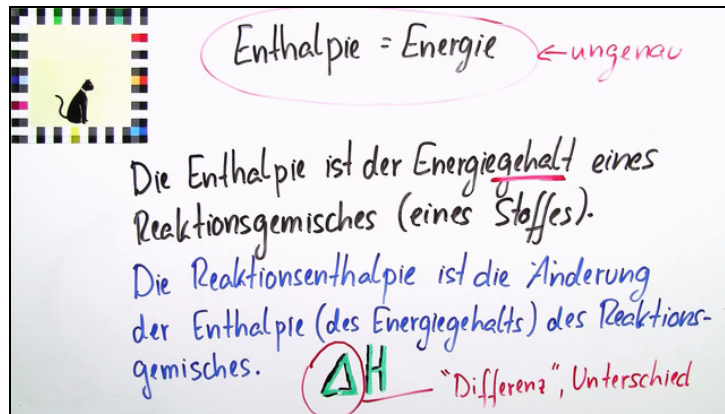 Enthalpie = Energie ← ungenau
Die Enthalpie ist der Energiegehalt eines
Reaktionsgemisches (eines Stoffes).
Die Reaktionsenthalpie ist die Änderung
der Enthalpie (des Energiegehalts) des Reaktions-
gemisches.
ΔH "Differenz", Unterschied